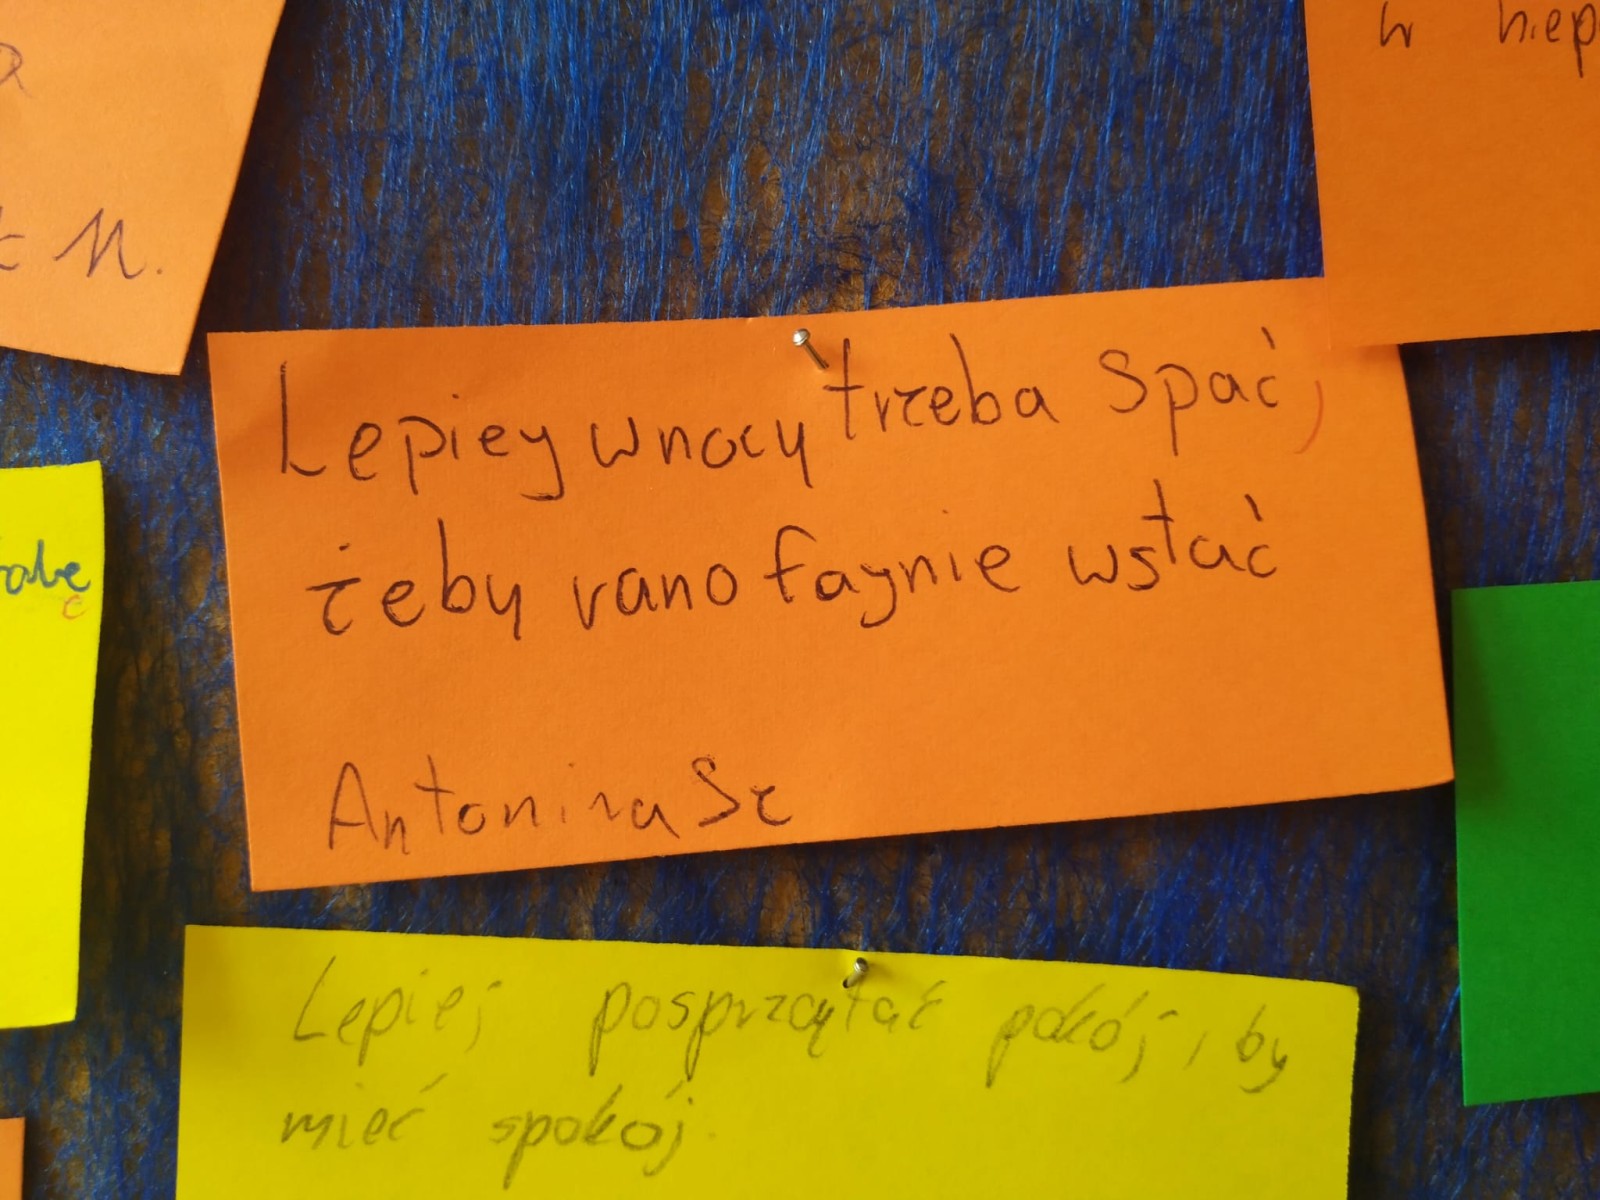 w
M.
Lepiey wnocy trzeba Spać,
żeby rano faynie wstać
Antonina Sz
Lepiej posprzątać pokój, by
mieć spokój.